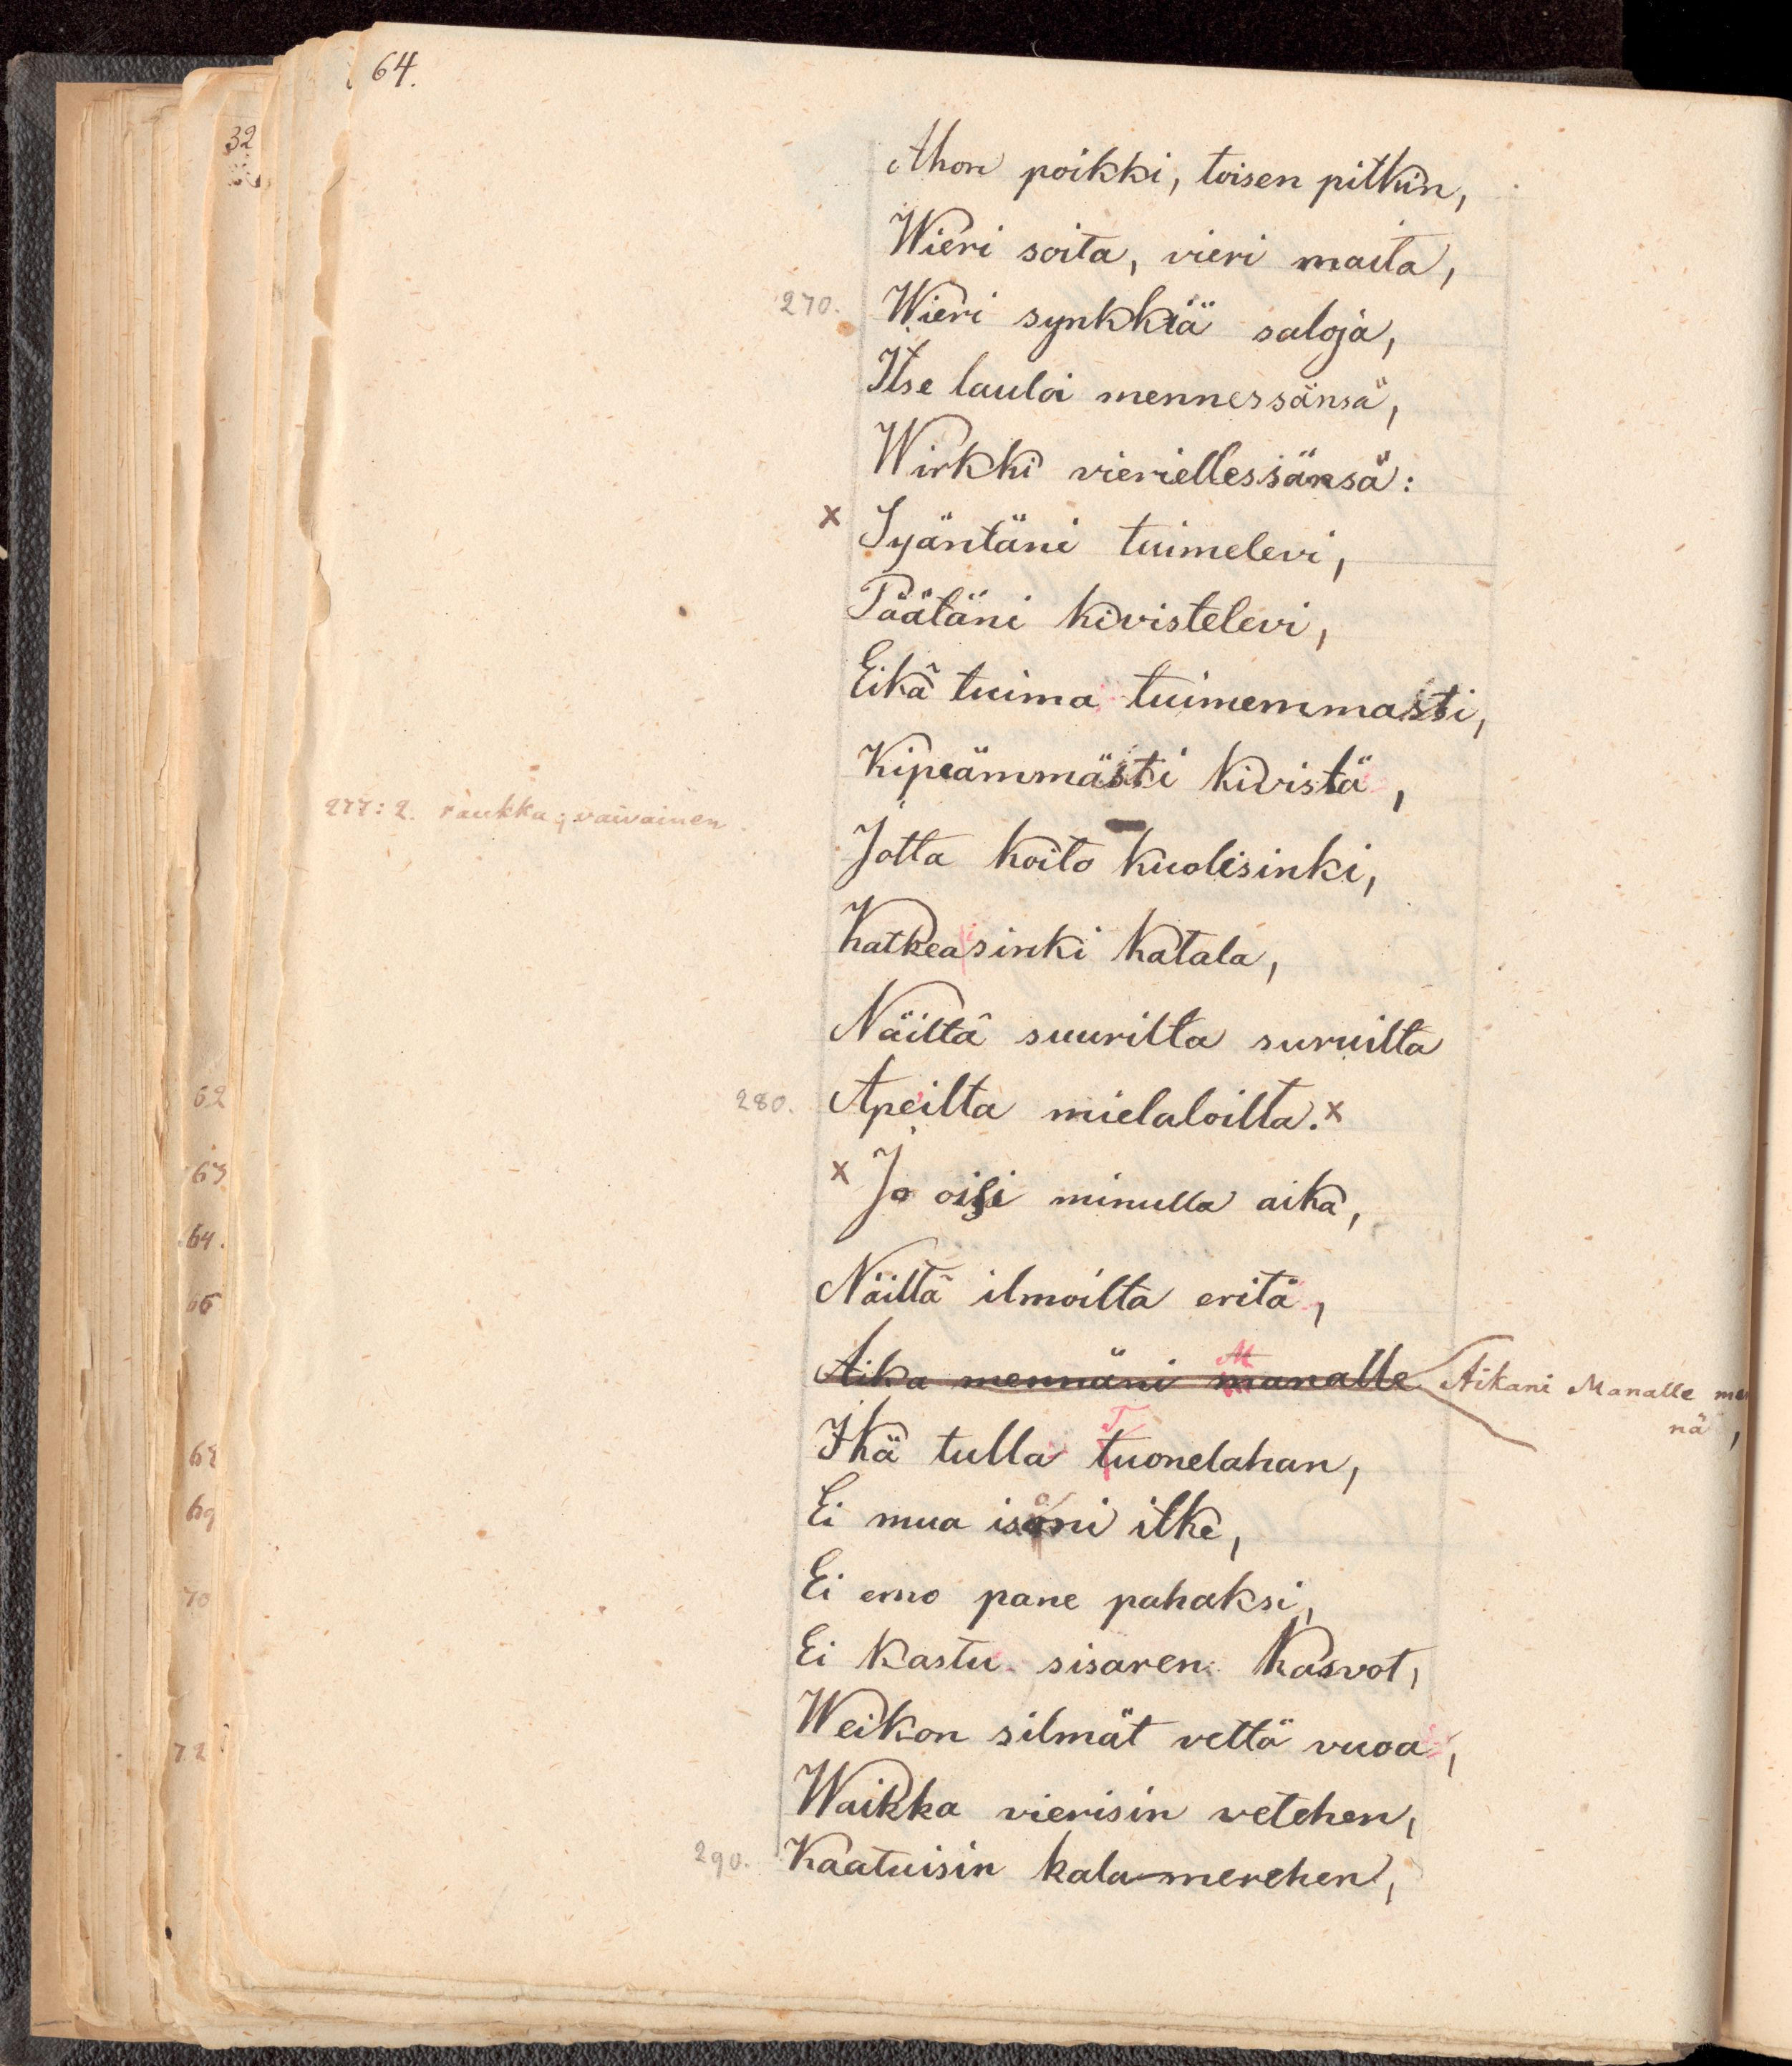 64.
32
Ahon poikki, toisen pitkin,
Wieri soita, vieri maita,
270. Wieri synkkiä saloja,
Itse lauloi mennessänsä,
Wirkki vieriellessänsä:
x Syäntäni tuimelevi,
Päätäni kivistelevi,
Eikä tuima tuimemmasti,
Kipeämmästi kivistä,
277: 2. raukka; vaivainen.
Jotta koito kuolisinki,
Katkeaisinki katala,
Näiltä suurilta suruilta
280. Apeilta mielaloilta. x
x Jo oisi minulla aika,
Näiltä ilmoilta eritä,
Aika mennäni Manalle
Aikani Manalle men
nä,
Ikä tulla Tuonelahan,
Ei mua isoni itke,
Ei emo pane pahaksi,
Ei kastu sisaren kasvot,
Weikon silmät vettä vuoa,
Waikka vierisin vetehen,
290. Kaatuisin kala-merehen,
62
63
64.
69
70
72